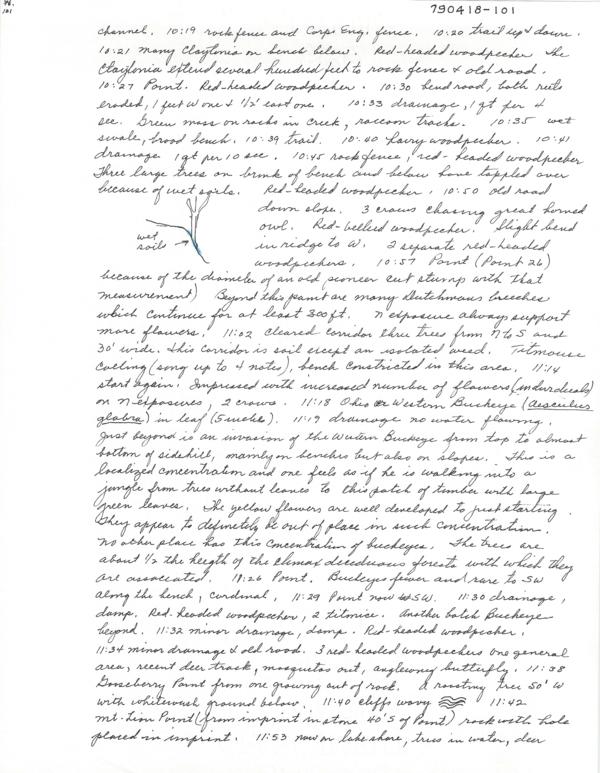 W.
101
790418-101
channel. 10:19 rock fence and Corps Eng. fence. 10:20 trail up & down.
10:21 many Claytonia on bench below. Red-headed woodpecker The
Claytonia extend several hundred feet to rock fence & old road.
10:27 Point. Red-headed woodpecker. 10:30 bend road, both ruts
eroded, 1 foot W one & 1/2' east one. 10:33 drainage, 1 qt per 4
sec. Green moss on rocks in creek, raccoon tracks. 10:35 wet
swale, broad bench. 10:39 trail. 10:40 hairy woodpecker. 10:41
drainage 1 qt per 10 sec. 10:45 rock fence, red-headed woodpecker
Three large trees on brink of bench and below have toppled over
because of wet soils. Red-headed woodpecker. 10:50 old road
down slope. 3 crows chasing great horned
owl. Red-bellied woodpecker. Slight bend
in ridge to W. 2 separate red-headed
woodpeckers. 10:57 Point (Point 26)
wet
soils
because of the diameter of an old pioneer cut stump with that
measurement) Beyond this point are many Dutchmans breeches
which continue for at least 300 ft. N exposure always support
more flowers. 11:02 cleared corridor thru trees from N to S and
30' wide. This corridor is soil except an isolated weed. Titmouse
calling (song up to 4 notes), bench constricted in this area. 11:14
start again. Impressed with increased number of flowers (individuals)
on N exposures, 2 crows. 11:18 Ohio or Western Buckeye (Aesculus
glabra) in leaf (5 inches). 11:19 drainage no water flowing.
Just beyond is an invasion of the Western Buckeye from top to almost
bottom of sidehill, mainly on benches but also on slopes. This is a
localized concentration and one feels as if he is walking into a
jungle from trees without leaves to this patch of timber with large
green leaves. The yellow flowers are well developed to just starting.
They appear to definitely be out of place in such concentration.
No other place has this concentration of buckeyes. The trees are
about 1/2 the heigth of the climax deciduous forests with which they
are associated. 11:26 Point. Buckeyes fewer and rare to SW
along the bench, cardinal. 11:29 Point now WSW. 11:30 drainage,
damp. Red-headed woodpecker, 2 titmice. Another batch Buckeye
beyond. 11:32 minor drainage, damp. Red-headed woodpecker.
11:34 minor drainage & old road. 3 red-headed woodpeckers one general
area, recent deer track, mosquitos out, anglewing butterfly. 11:38
Gooseberry Point from one growing out of rock. A roosting tree 50' W
with whitewash ground below. 11:40 cliffs wavy 11:42
Mt. Lion Point (from imprint in stone 40' S of Point) rock with hole
placed in imprint. 11:53 now on lake shore, trees in water, deer